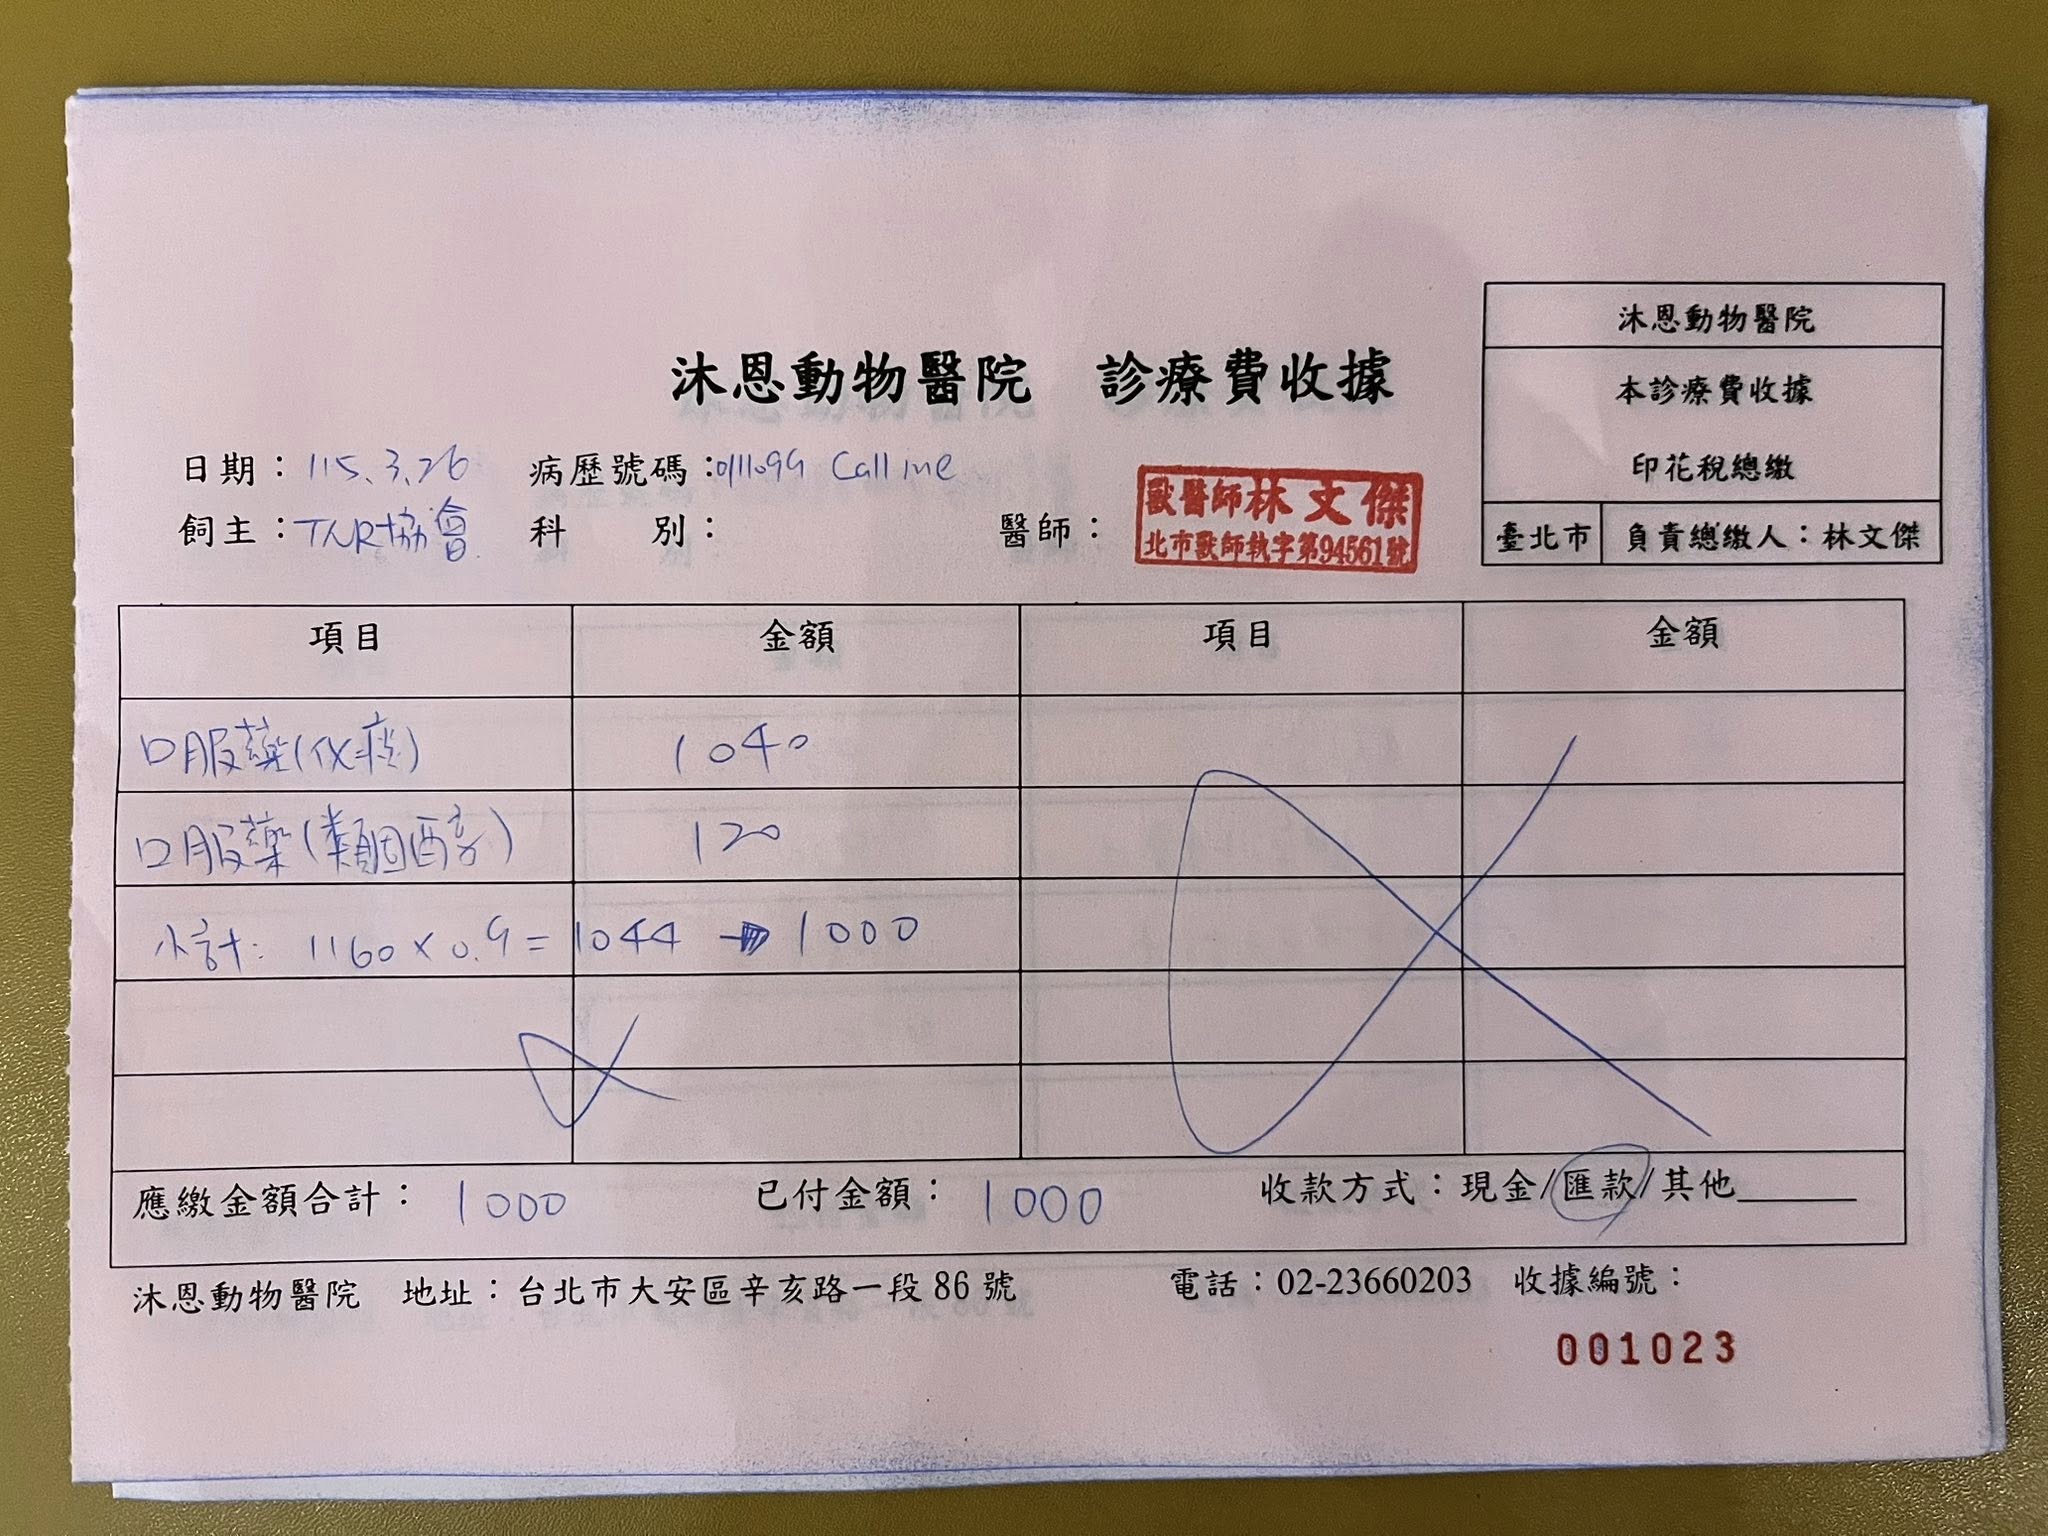 沐恩動物醫院
本診療費收據
印花稅總繳
臺北市 負責總繳人：林文傑
沐恩動物醫院 診療費收據
日期：115.3.26 病歷號碼：0111099 Call me
飼主：TNR協會 科 別： 醫師：
獸醫師林文傑
北市獸師執字第94561號
項目 金額 項目 金額
口服藥(化痰) 1040
口服藥(類固醇) 120
小計: 1160×0.9=1044 → 1000
應繳金額合計：1000 已付金額：1000 收款方式：現金/匯款/其他______
沐恩動物醫院 地址：台北市大安區辛亥路一段86號 電話：02-23660203 收據編號：
001023